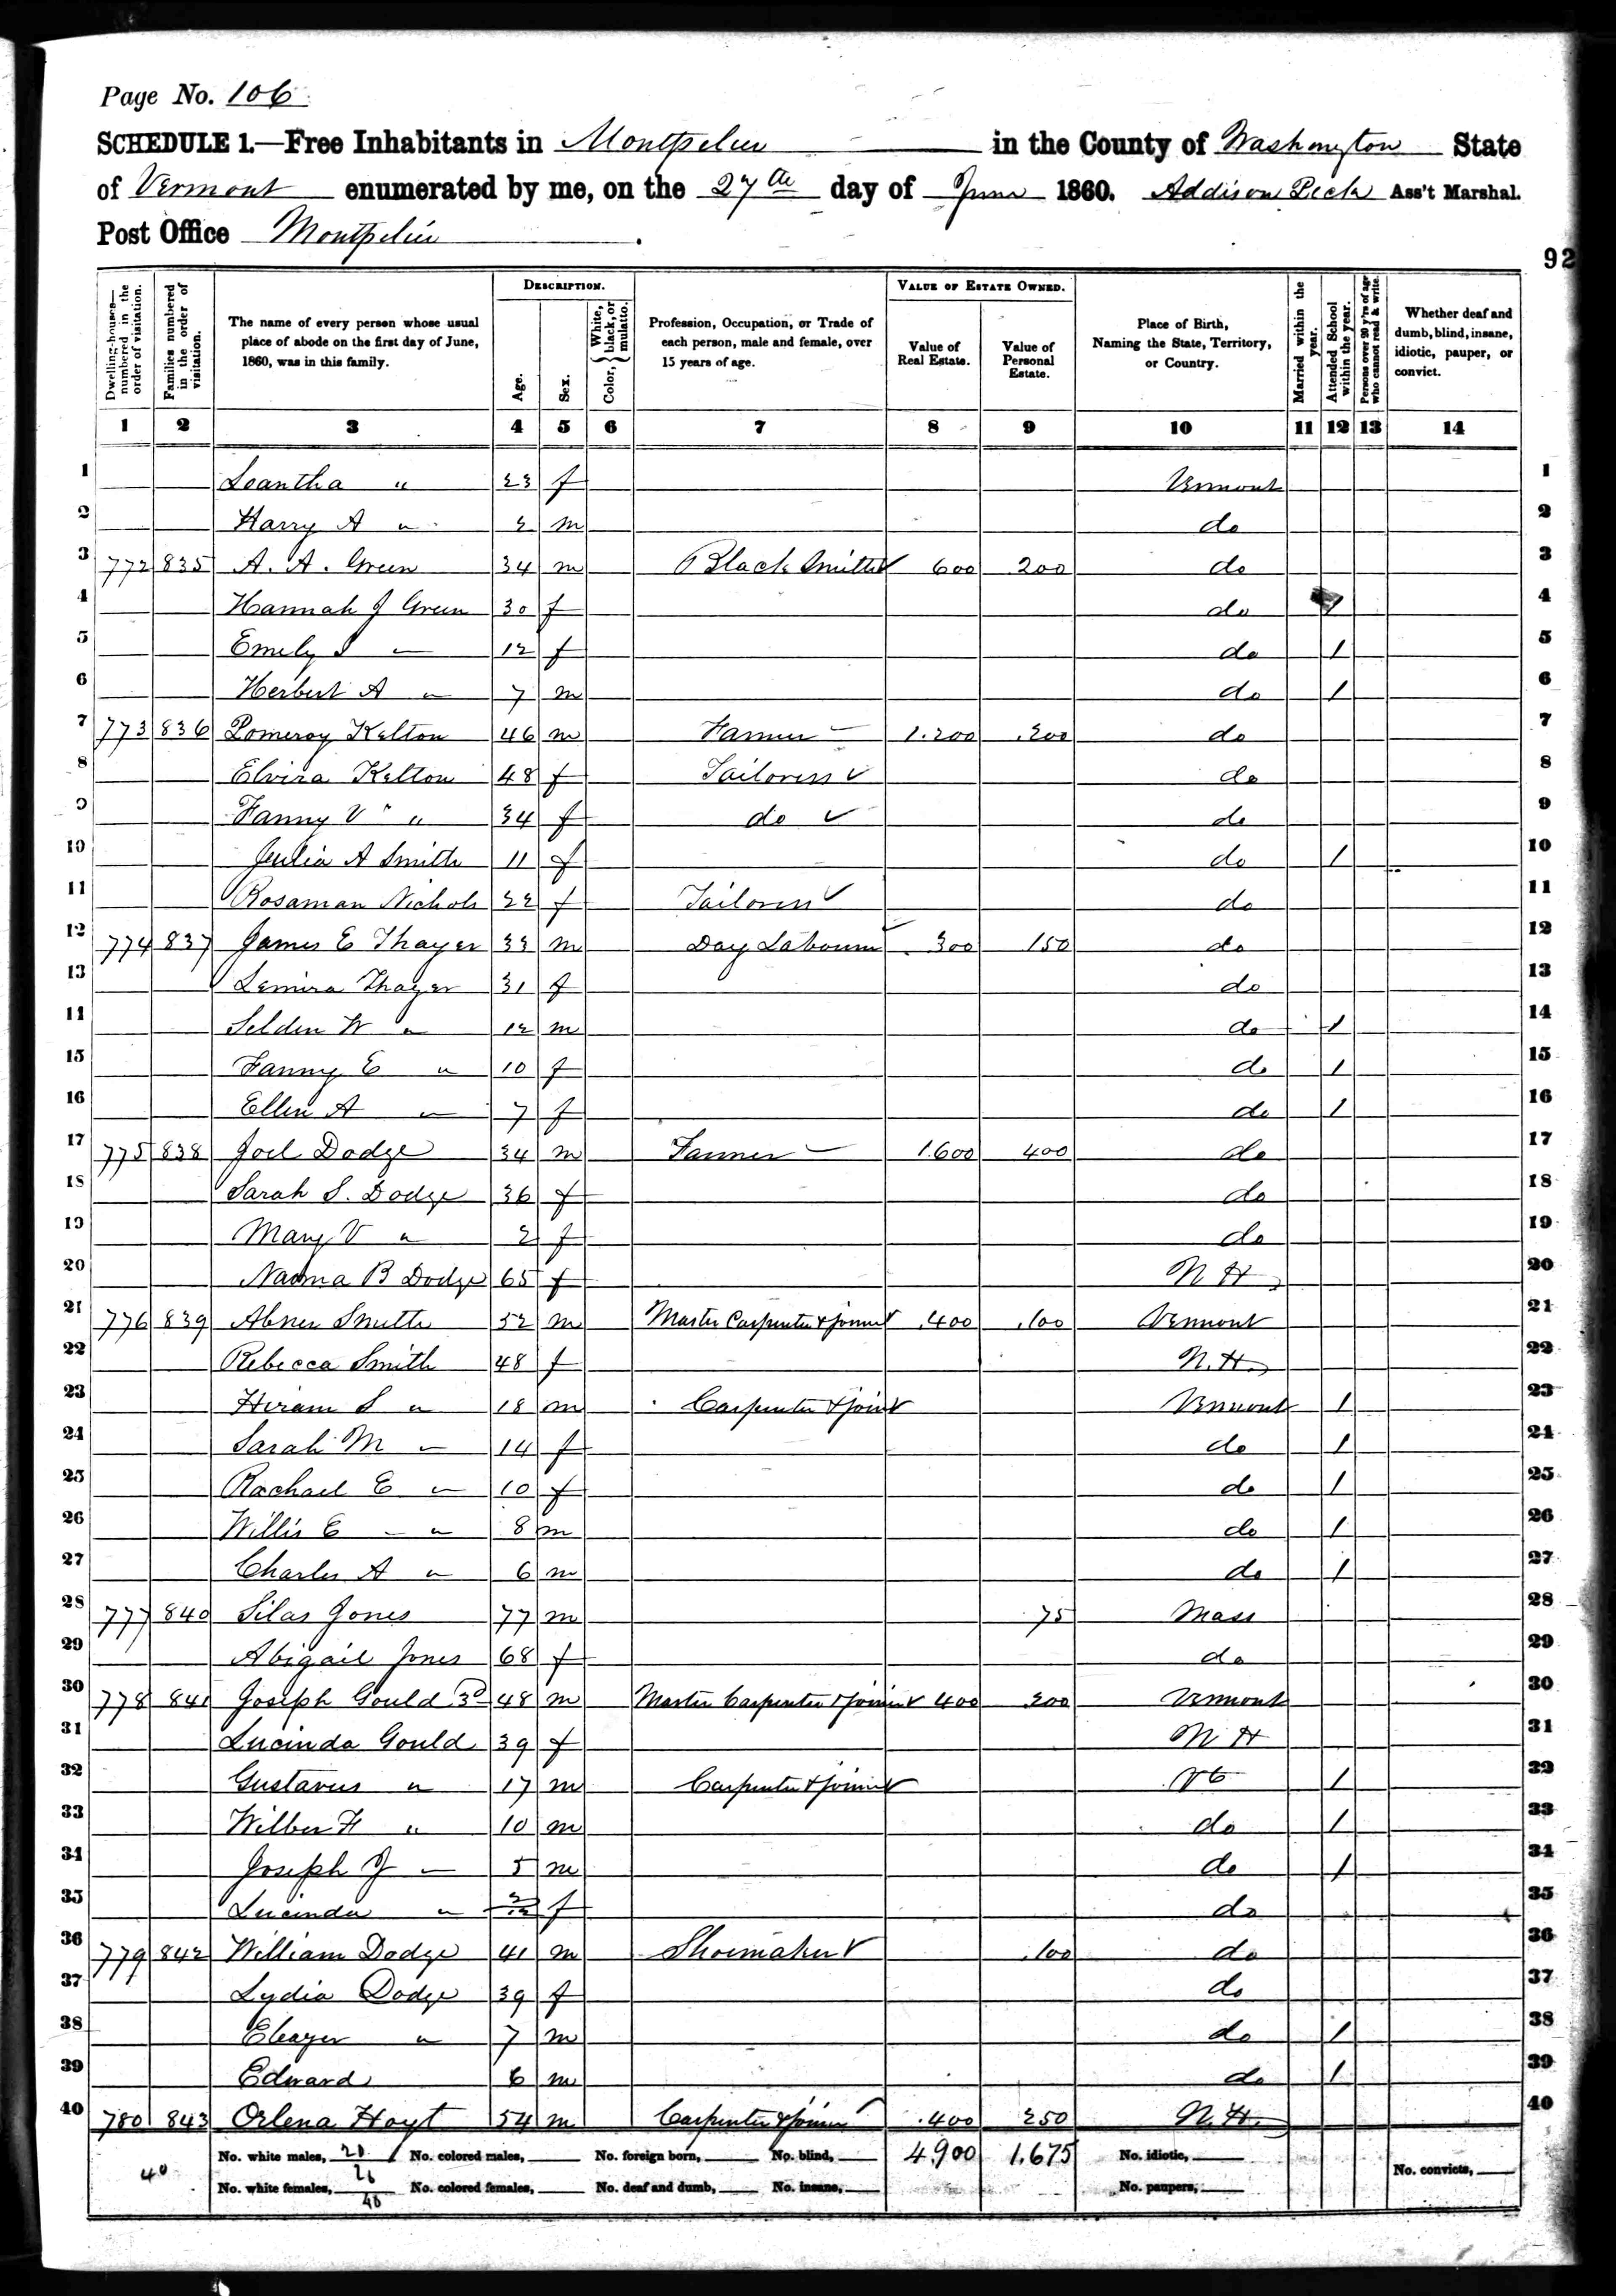 Page No. 106
SCHEDULE 1.—Free Inhabitants in Montpelier in the County of Washington State
of Vermont enumerated by me, on the 27th day of June 1860. Addison Peck Ass't Marshal.
Post Office Montpelier.
92
DESCRIPTION. VALUE OF ESTATE OWNED.
Dwelling-houses—numbered in the order of visitation. Families numbered in the order of visitation. The name of every person whose usual place of abode on the first day of June, 1860, was in this family. Age. Sex. Color, { White, black, or mulatto. Profession, Occupation, or Trade of each person, male and female, over 15 years of age. Value of Real Estate. Value of Personal Estate. Place of Birth, Naming the State, Territory, or Country. Married within the year. Attended School within the year. Persons over 20 y'rs of age who cannot read & write. Whether deaf and dumb, blind, insane, idiotic, pauper, or convict.
1 2 3 4 5 6 7 8 9 10 11 12 13 14
1 Leantha " 23 f Vermont 1
2 Harry A " 2 m do 2
3 772 835 A. A. Green 34 m Black Smith 600 200 do 3
4 Hannah J Green 30 f do 4
5 Emely " 12 f do 1 5
6 Herbert A " 7 m do 1 6
7 773 836 Pomeroy Kelton 46 m Farmer 1.200 200 do 7
8 Elvira Kelton 48 f Tailoress do 8
9 Fanny V " 34 f do do 9
10 Julia A Smith 11 f do 1 10
11 Rosaman Nichols 22 f Tailoress do 11
12 774 837 James E Thayer 33 m Day Labourer 300 150 do 12
13 Lemira Thayer 31 f do 13
14 Selden W " 12 m do 1 14
15 Fanny E " 10 f do 1 15
16 Ellen A " 7 f do 1 16
17 775 838 Joel Dodge 34 m Farmer 1.600 400 do 17
18 Sarah S. Dodge 36 f do 18
19 Mary V " 2 f do 19
20 Naoma B Dodge 65 f N H 20
21 776 839 Abner Smith 52 m Master Carpenter & joiner 400 100 Vermont 21
22 Rebecca Smith 48 f N. H. 22
23 Hiram S " 18 m Carpenter & join Vermont 1 23
24 Sarah M " 14 f do 1 24
25 Rachael E " 10 f do 1 25
26 Willis E " 8 m do 1 26
27 Charles A " 6 m do 1 27
28 777 840 Silas Jones 77 m 75 Mass 28
29 Abigail Jones 68 f do 29
30 778 841 Joseph Gould 3d 48 m Master Carpenter & joiner 400 200 Vermont 30
31 Lucinda Gould 39 f N H 31
32 Gustavus " 17 m Carpenter & joiner Vt 1 32
33 Wilber F " 10 m do 1 33
34 Joseph J " 5 m do 1 34
35 Lucinda " 2/12 f do 35
36 779 842 William Dodge 41 m Shoemaker 100 do 36
37 Lydia Dodge 39 f do 37
38 Eleazer " 7 m do 1 38
39 Edward 6 m do 1 39
40 780 843 Orlena Hoyt 54 m Carpenter & joiner 400 250 N. H. 40
40 No. white males, 20 No. colored males, No. foreign born, No. blind, 4.900 1.675 No. idiotic, No. convicts,
No. white females, No. colored females, No. deaf and dumb, No. insane, No. paupers,
40